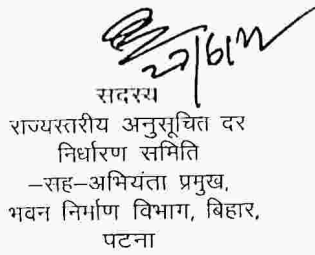 सदस्य
राज्यस्तरीय अनुसूचित दर
निर्धारण समिति
–सह–अभियंता प्रमुख,
भवन निर्माण विभाग, बिहार,
पटना